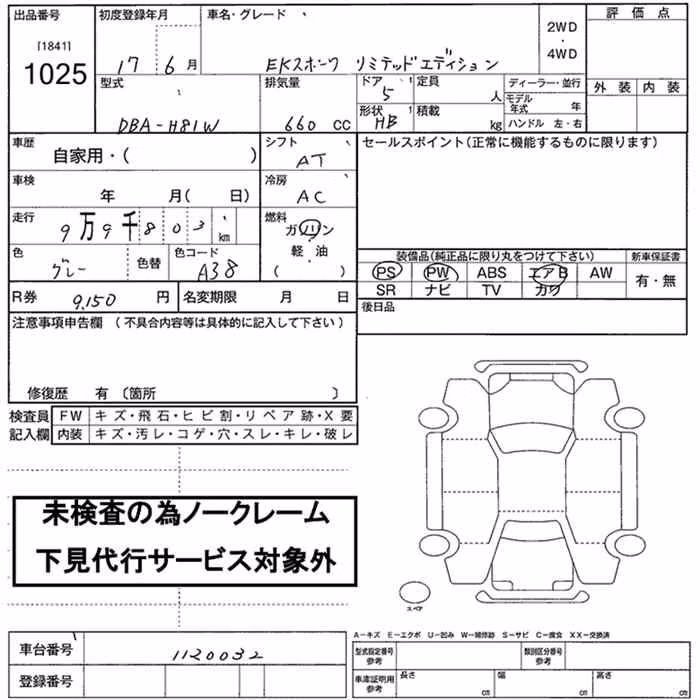 出品番号 初度登録年月 車名・グレード 評価点
[1841]
1025
17 6 月 EKスポーツ リミテッドエディション 2WD・4WD
型式 排気量 ドア 5 定員 人 ディーラー・並行 外装 内装
DBA-H81W 660 CC 形状 HB 積載 kg モデル年式 年
ハンドル 左・右
車歴 自家用・( ) シフト AT セールスポイント(正常に機能するものに限ります)
車検 年 月( 日) 冷房 AC
走行 9万9千803 km 燃料 ガソリン・軽油( )
色 グレー 色替 色コード A38
装備品(純正品に限り丸をつけて下さい) 新車保証書
PS PW ABS エアB AW 有・無
SR ナビ TV カワ
R券 9,150 円 名変期限 月 日 後日品
注意事項申告欄 (不具合内容等は具体的に記入して下さい)
修復歴 有 〔箇所 〕
検査員記入欄 FW キズ・飛石・ヒビ割・リペア跡・X要
内装 キズ・汚レ・コゲ・穴・スレ・キレ・破レ
未検査の為ノークレーム
下見代行サービス対象外
スペア
A-キズ E-エクボ U-凹み W-補修跡 S-サビ C-腐食 XX-交換済
車台番号 1120032 型式指定番号 参考 類別区分番号 参考
登録番号 車庫証明用 参考 長さ cm 幅 cm 高さ cm